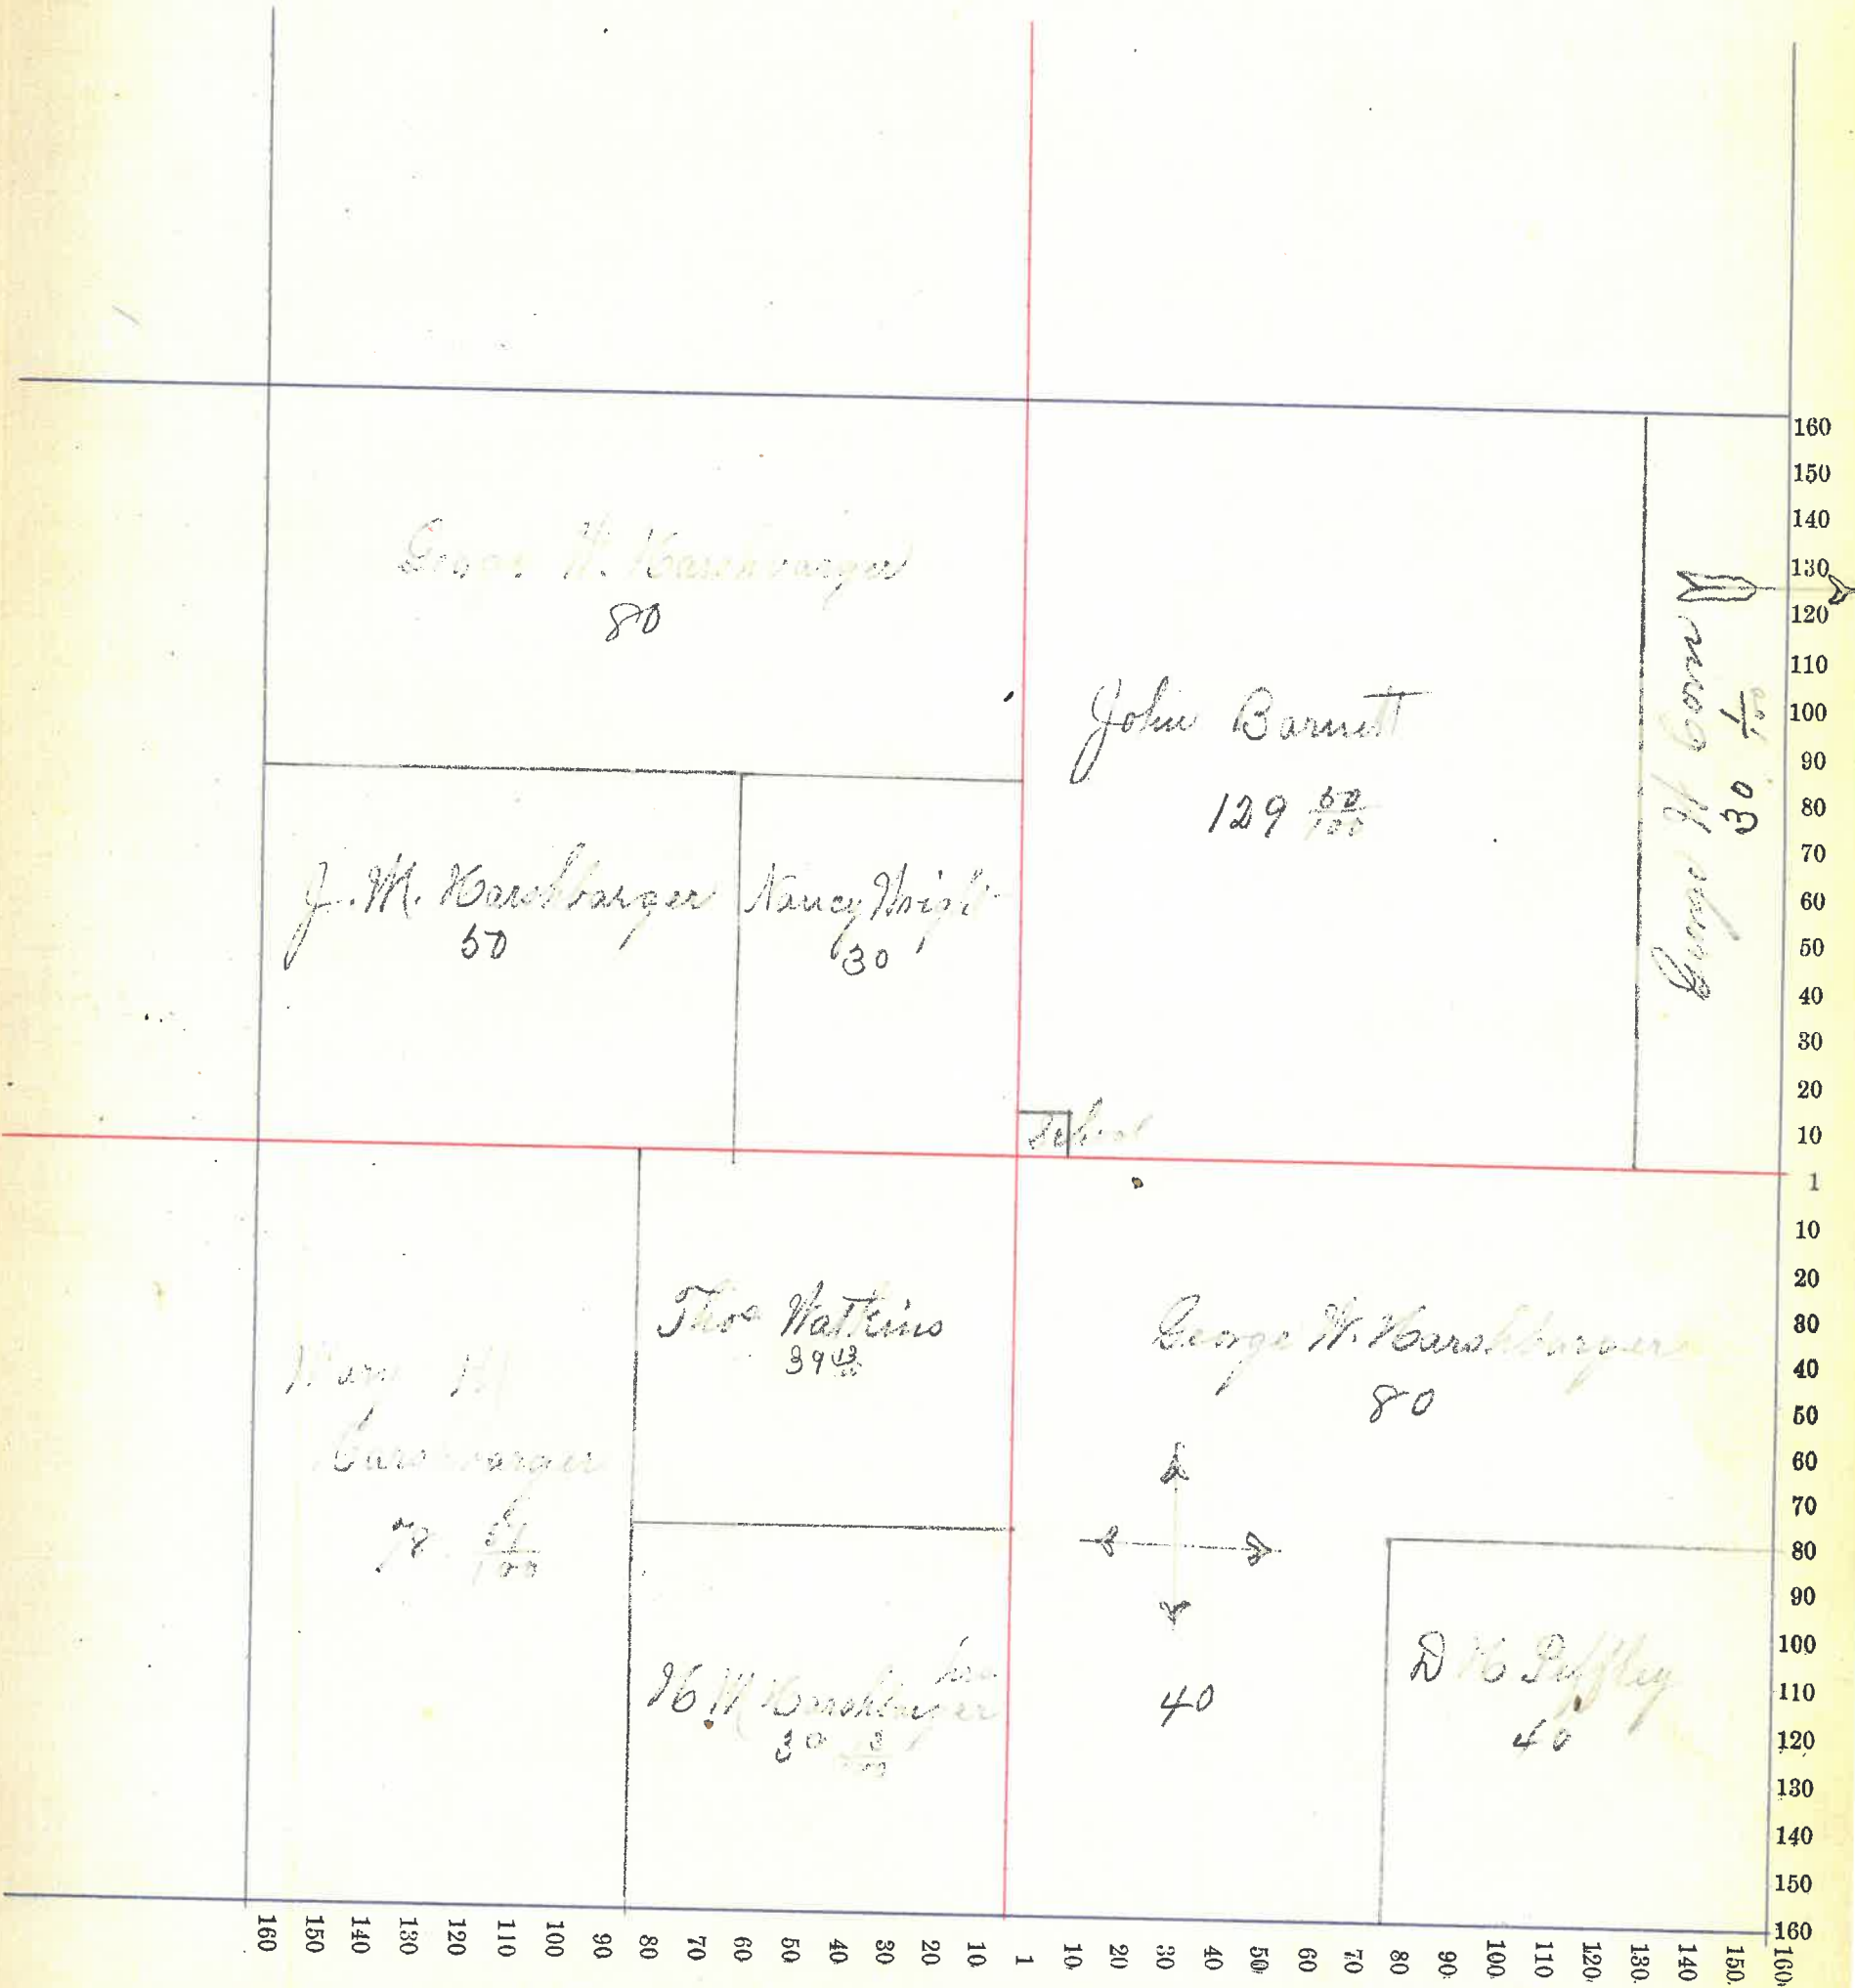 George W. Harshbarger
80
John Barnett
129 50/100
30 1/100
J. M. Harshbarger
50
Nancy Wright
30
School
Thos Watkins
39 13/100
George W. Harshbarger
80
Mary
Harshbarger
78 51/100
H M Harshbarger
3/100
40
D H Peffley
40
160
150
140
130
120
110
100
90
80
70
60
50
40
30
20
10
1
10
20
30
40
50
60
70
80
90
100
110
120
130
140
150
160
160 150 140 130 120 110 100 90 80 70 60 50 40 30 20 10 1 10 20 30 40 50 60 70 80 90 100 110 120 130 140 150 160